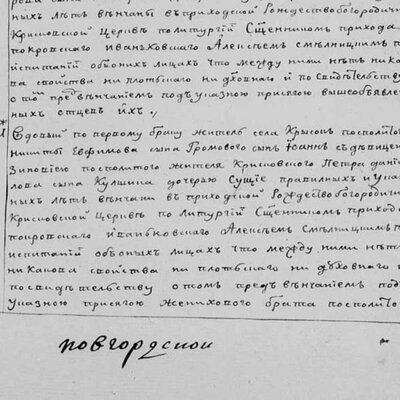 ныхъ лѣтъ вѣнчаны въ приходской Рождествобогородичн
Крисовской Церквѣ по литургіи Священникомъ прихода
покровскаго иваньковскаго Алексѣемъ Смѣлницкимъ п
испытаніи обоихъ лицахъ что между ними нѣтъ ника
ва свойства ни плотскаго ни духовнаго и по свидѣтелству
о томъ предвѣнчаніемъ подъ указною присягою вышеобъявлен
ныхъ отцевъ ихъ.
Вдовый по первому браку житель села Крысокъ посполитог
Никиты Евфимова сына Громового сынъ Іоаннъ съ дѣвицею
Зиновіею посполитого жителя Крисовского Петра Дани
лова сына Кулшина дочерью Сущіе правилныхъ и указ
ныхъ лѣтъ вѣнчаны въ приходской Рождествобогородичн
Крисовской Церквѣ по литургіи Священникомъ прихода
покровскаго иваньковскаго Алексѣемъ Смѣлницкимъ п
испытаніи обоныхъ лицахъ что между ними нѣтъ
никакова свойства ни плотскаго ни духовнаго и
по свидѣтелству о томъ предвѣнчаніемъ подъ
указною присягою женихового брата посполитог
новгородской